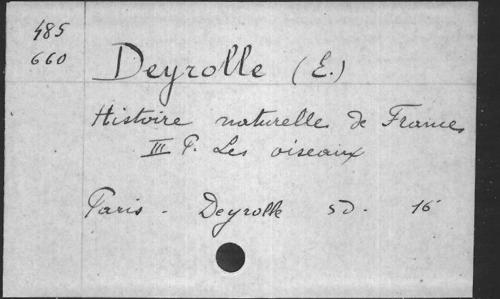 485
660
Deyrolle (E.)
Histoire naturelle de France
III P. Les oiseaux
Paris - Deyrolle sd. 16